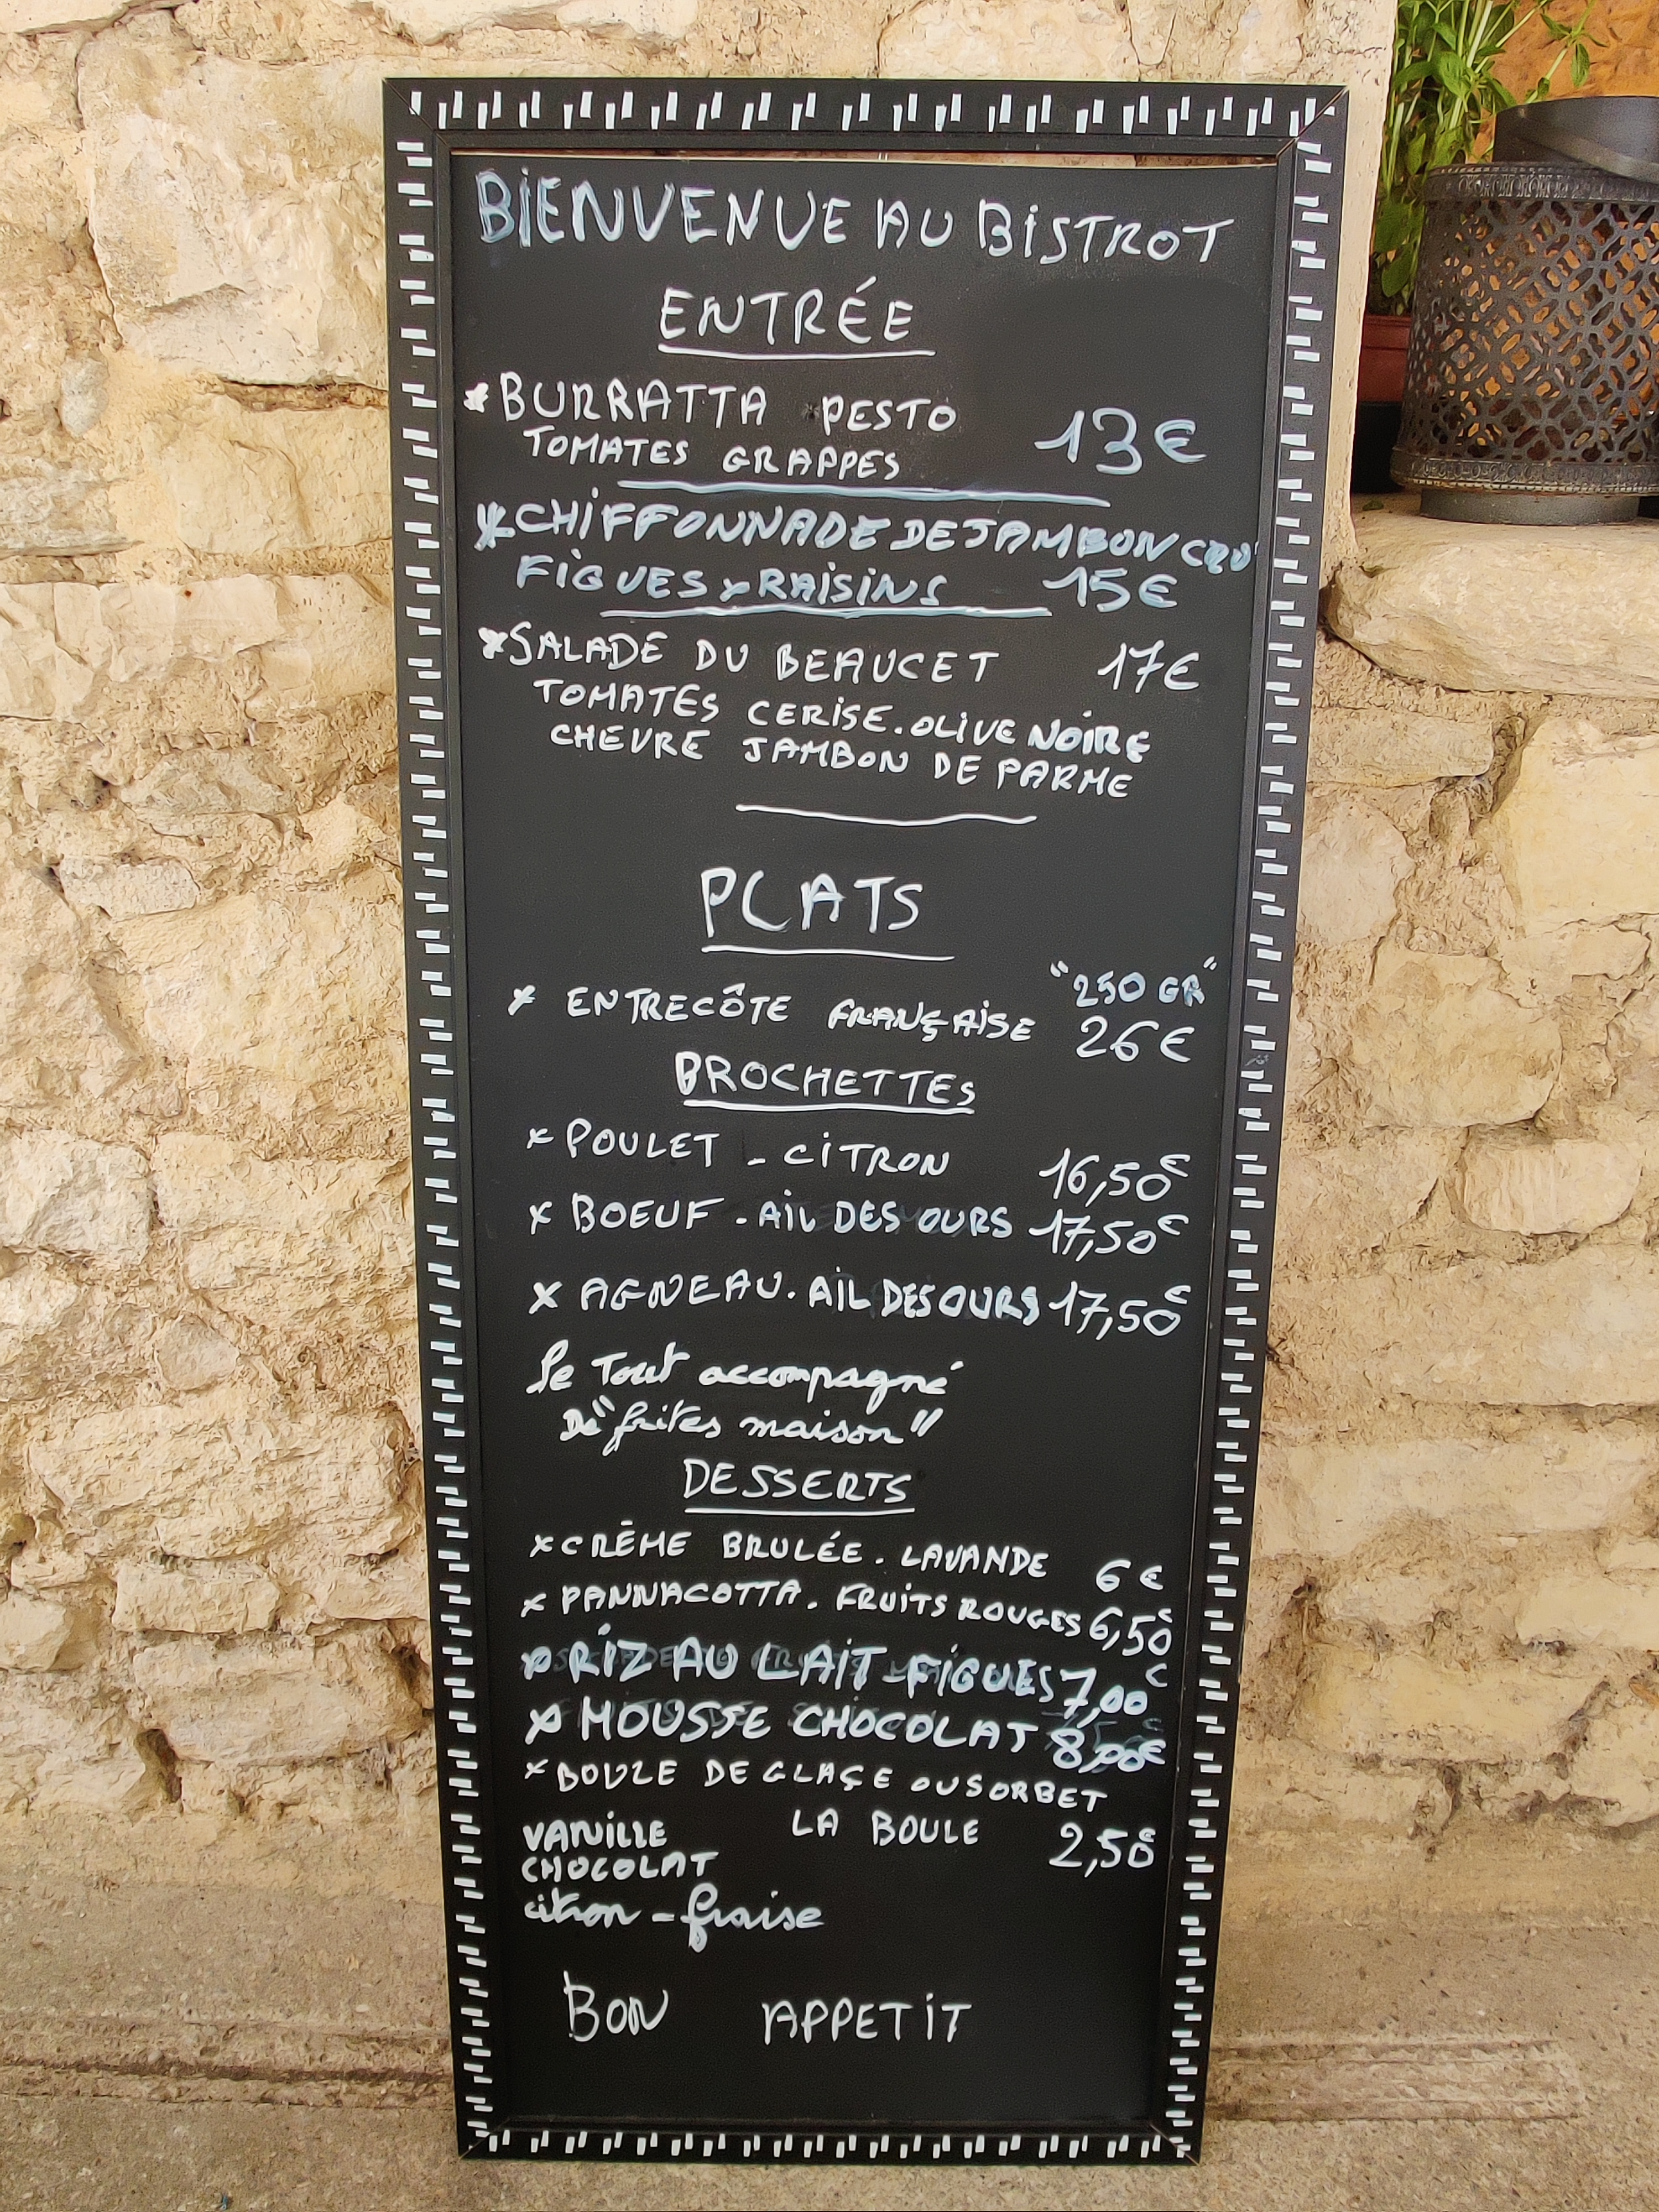 BIENVENUE AU BISTROT
ENTRÉE
* BURRATTA PESTO 13€
TOMATES GRAPPES
* CHIFFONNADE DE JAMBON CRU
FIGUES x RAISINS 15€
* SALADE DU BEAUCET 17€
TOMATES CERISE. OLIVE NOIRE
CHEVRE JAMBON DE PARME
PLATS
"250 GR"
x ENTRECÔTE FRANÇAISE 26€
BROCHETTES
x POULET - CITRON 16,50€
x BOEUF - AIL DES OURS 17,50€
x AGNEAU. AIL DES OURS 17,50€
Le Tout accompagné
De "frites maison"
DESSERTS
x CRÈME BRULÉE. LAVANDE 6€
x PANNACOTTA. FRUITS ROUGES 6,50€
x RIZ AU LAIT - FIGUES 7,00€
x MOUSSE CHOCOLAT 8,00€
x BOULE DE GLAÇE OU SORBET
VANILLE LA BOULE 2,50€
CHOCOLAT
citron - fraise
BON APPETIT